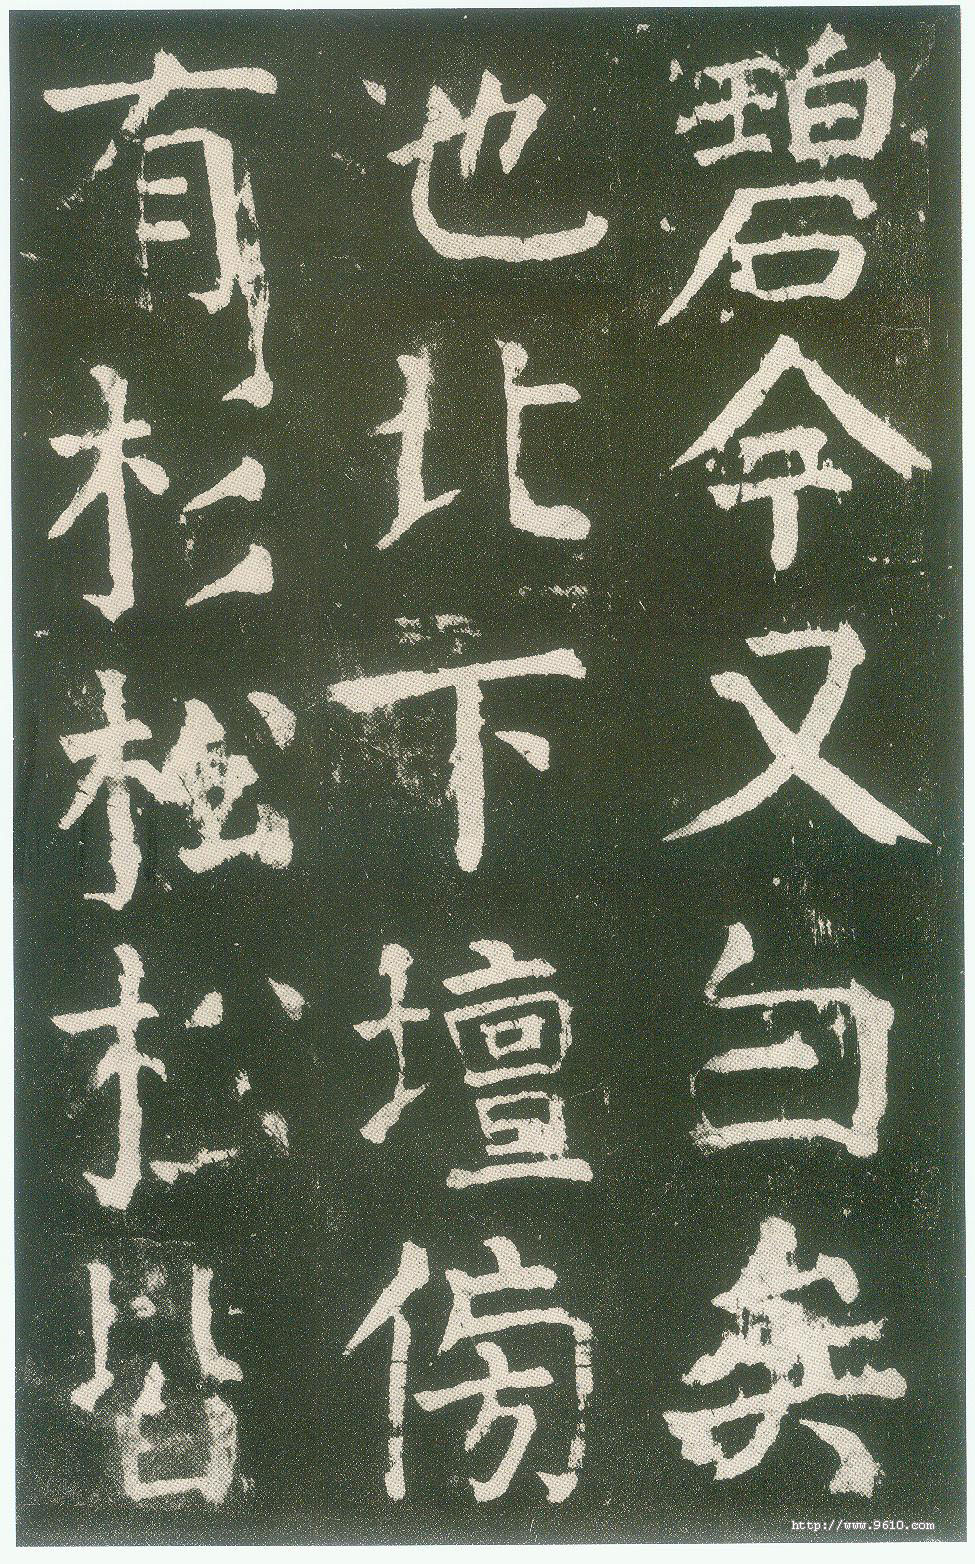 碧今又白矣
池北下壇傍
有杉松松皆
http://www.9610.com